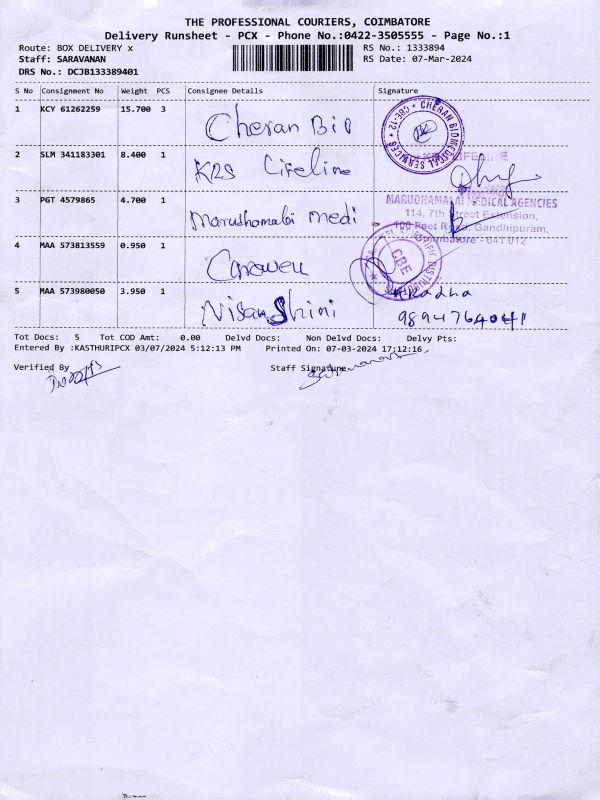 THE PROFESSIONAL COURIERS, COIMBATORE
Delivery Runsheet - PCX - Phone No.:0422-3505555 - Page No.:1
Route: BOX DELIVERY x RS No.: 1333894
Staff: SARAVANAN RS Date: 07-Mar-2024
DRS No.: DCJB133389401
S No Consignment No Weight PCS Consignee Details Signature
1 KCY 61262259 15.700 3 Cheran Bio
CHERAN BIOMEDICAL SERVICES * CBE-12 *
2 SLM 341183301 8.400 1 KRS Lifeline
LIFELINE
3 PGT 4579865 4.700 1 Marudhamalai Medi
MARUDHAMALAI MEDICAL AGENCIES
114, 7th Street Extension,
100 Feet Road, Gandhipuram,
Coimbatore - 641 012
4 MAA 573813559 0.950 1
CBE
5 MAA 573980050 3.950 1 Nisan Shini
Radha
9894764041
Tot Docs: 5 Tot COD Amt: 0.00 Delvd Docs: Non Delvd Docs: Delvy Pts:
Entered By :KASTHURIPCX 03/07/2024 5:12:13 PM Printed On: 07-03-2024 17:12:16
Verified By Staff Signature